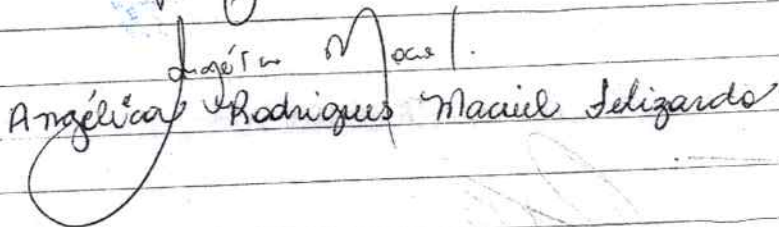 Angélica Maciel.
Angélica Rodrigues Maciel Felizardo